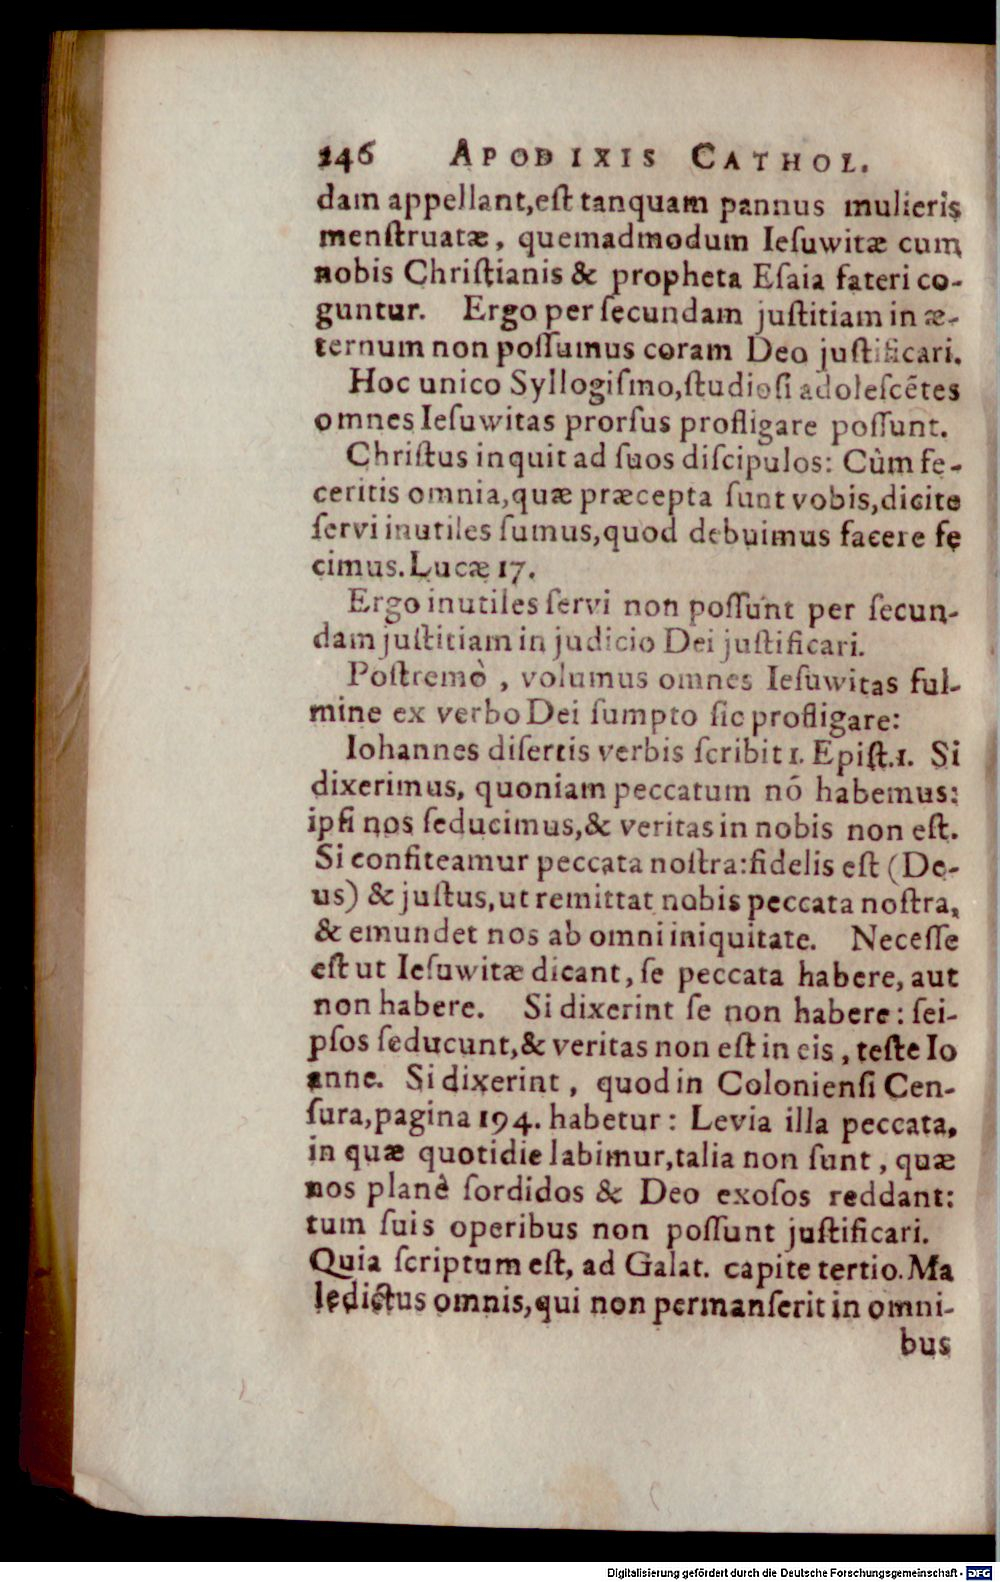 246 APODIXIS CATHOL.
dam appellant,eſt tanquam pannus mulieris
menſtruatæ, quemadmodum Ieſuwitæ cum
nobis Chriſtianis & propheta Eſaia fateri co-
guntur. Ergo per ſecundam juſtitiam in æ-
ternum non poſſumus coram Deo juſtificari.
Hoc unico Syllogiſmo,ſtudioſi adoleſcẽtes
omnes Ieſuwitas prorſus profligare poſſunt.
Chriſtus inquit ad ſuos diſcipulos: Cûm fe-
ceritis omnia,quæ præcepta ſunt vobis,dicite
ſervi inutiles ſumus,quod debuimus facere fe
cimus. Lucæ 17.
Ergo inutiles ſervi non poſſunt per ſecun-
dam juſtitiam in judicio Dei juſtificari.
Poſtremò , volumus omnes Ieſuwitas ful-
mine ex verbo Dei ſumpto ſic profligare:
Iohannes diſertis verbis ſcribit 1. Epiſt.1. Si
dixerimus, quoniam peccatum nõ habemus:
ipſi nos ſeducimus,& veritas in nobis non eſt.
Si confiteamur peccata noſtra:fidelis eſt (De-
us) & juſtus,ut remittat nobis peccata noſtra,
& emundet nos ab omni iniquitate. Neceſſe
eſt ut Ieſuwitæ dicant, ſe peccata habere, aut
non habere. Si dixerint ſe non habere : ſei-
pſos ſeducunt,& veritas non eſt in eis , teſte Io
anne. Si dixerint , quod in Colonienſi Cen-
ſura,pagina 194. habetur : Levia illa peccata,
in quæ quotidie labimur,talia non ſunt , quæ
nos planè ſordidos & Deo exoſos reddant:
tum ſuis operibus non poſſunt juſtificari.
Quia ſcriptum eſt, ad Galat. capite tertio. Ma
ledictus omnis,qui non permanſerit in omni-
bus
Digitalisierung gefördert durch die Deutsche Forschungsgemeinschaft - DFG